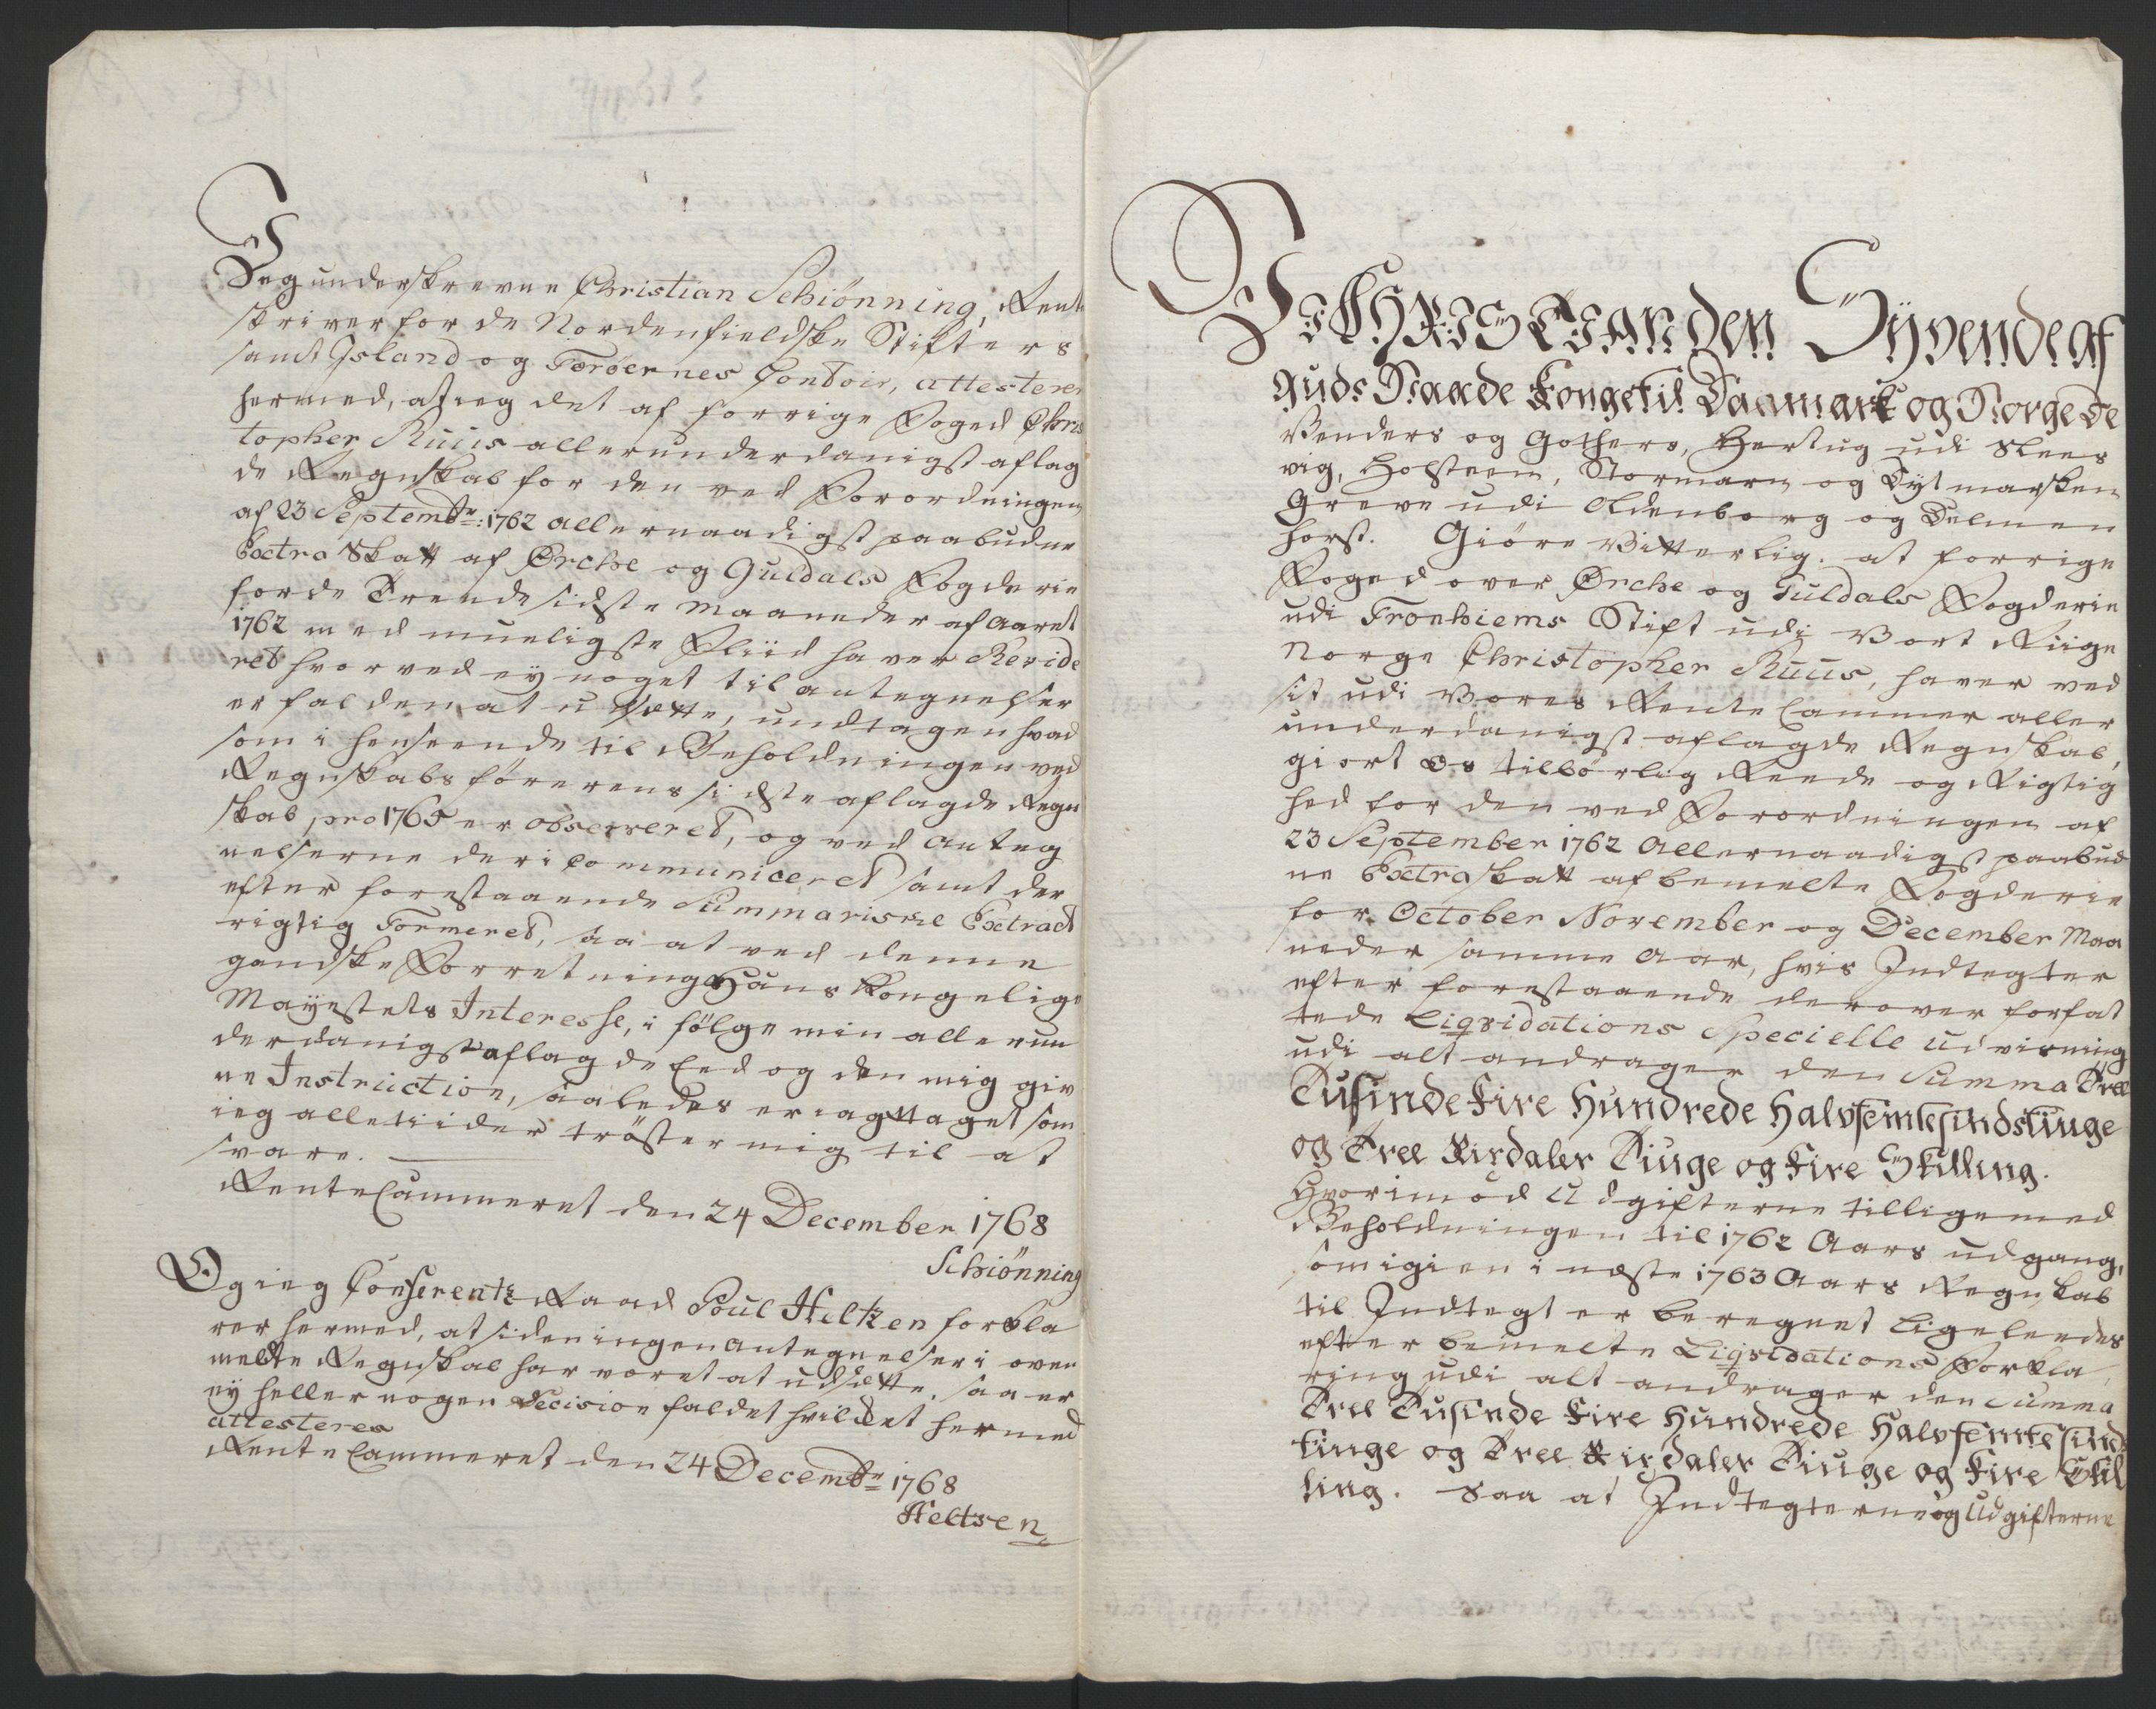 Jeg underskrevne Christian Schiönning, Rente
skriver for de Nordenfieldske Stifters
samt Island og Færöernes Contoir, attesterer
hermed, at ieg det af forrige Foged Chris
topher Ruus allerunderdanigst aflag
de Regnskab for den ved Forordningen
af 23 Septembr: 1762 allernaadigst paabudne
Extra Skatt af Ørche og Guldals Fogderie
for de Trende sidste Maaneder af Aaret
1762 med mueligste Fliid haver Revide
ret hvorved ey noget til antegnelser
er falden at udsætte, undtagen hvad
som i henseende til Beholdningen ved
Regnskabs förerens sidste aflagde Regn
skab pro 1765 er observeret, og ved Anteg
nelserne deri communiceret samt der
efter forestaaende Summariske Extract
rigtig Formeret, saa at ved denne
gandske Forretning Hans Kongelige
Mayestets Interesse, i fölge min allerun
derdanigst aflagde Eed og den mig giv
ne Instruction, saaledes er iagttaget som
ieg alletiider tröster mig til at
svare.
RenteCammeret den 24 December 1768
Schiönning
Og ieg Conferentz Raad Poul Heltzen forkla
rer hermed, at siden ingen Antegnelser i oven
meldte Regnskab har været at udsætte, saa er
ey heller nogen Decision faldet hvilket hermed
attesteres
RenteCammeret den 24 Decembr 1768
Heltzen
Vi CHRISTIAN den Syvende af
Guds Naade Konge til Danmark og Norge De
Venders og Gothers, Hertug udi Sles
vig, Holsteen, Stormarn og Dytmarsken
Greve udi Oldenborg og Delmen
horst. Giöre Vitterlig: at forrige
Foged over Ørche og Guldals Fogderie
udi Tronhiems Stift udi Vort Riige
Norge Christopher Ruus, haver ved
sit udi Vores Rente Cammer aller
underdanigst aflagde Regnskab,
giort Os tilbörlig Reede og Rigtig
hed for den ved Forordningen af
23 September 1762 Allernaadigst paabud
ne Extraskatt af bemelte Fogderie
for October November og December Maa
neder samme Aar, hvis Indtegter
efter forestaaende derover forfat
tede Liqvidations Specielle Udviisning
udi alt andrager den Summa Tree
Tusinde Fire Hundrede Halvfemtesindstiuge
og Tree Rixdaler Tiuge og Fire Skilling.
Hvorimod Udgifterne tilligemed
Beholdningen til 1762 Aars udgang,
som igien i næste 1763 Aars Regnskab
til Indtegt er beregnet ligeleedes
efter bemelte Liqvidations Forkla
ring udi alt andrager den Summa
Tree Tusinde Fire Hundrede Halvfemtesinds
tiuge og Tree Rixdaler Tiuge og Fire Skil
ling. Saa at Indtegterne og Udgifterne